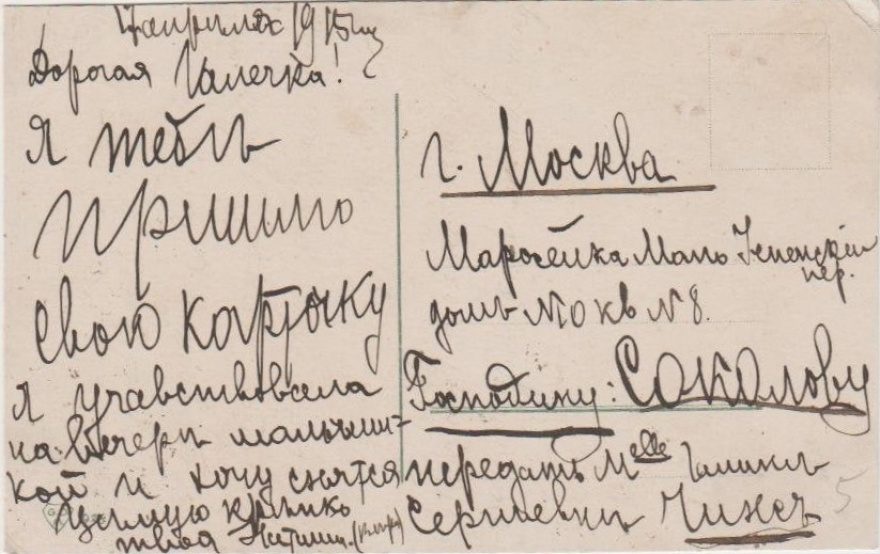 апреля 1915
Дорогая Галечка!
Я тебѣ
пришлю
свою карточку
Я учавствовала
на вечерѣ мальчиш-
кой и хочу снятся
цѣлую крѣпко
твоя
г. Москва
Маросейка Мало Успенскій
пер.
домъ №10 кв №8.
Господину: Соколову
передать Melle Галинѣ
Сергѣевнѣ
5